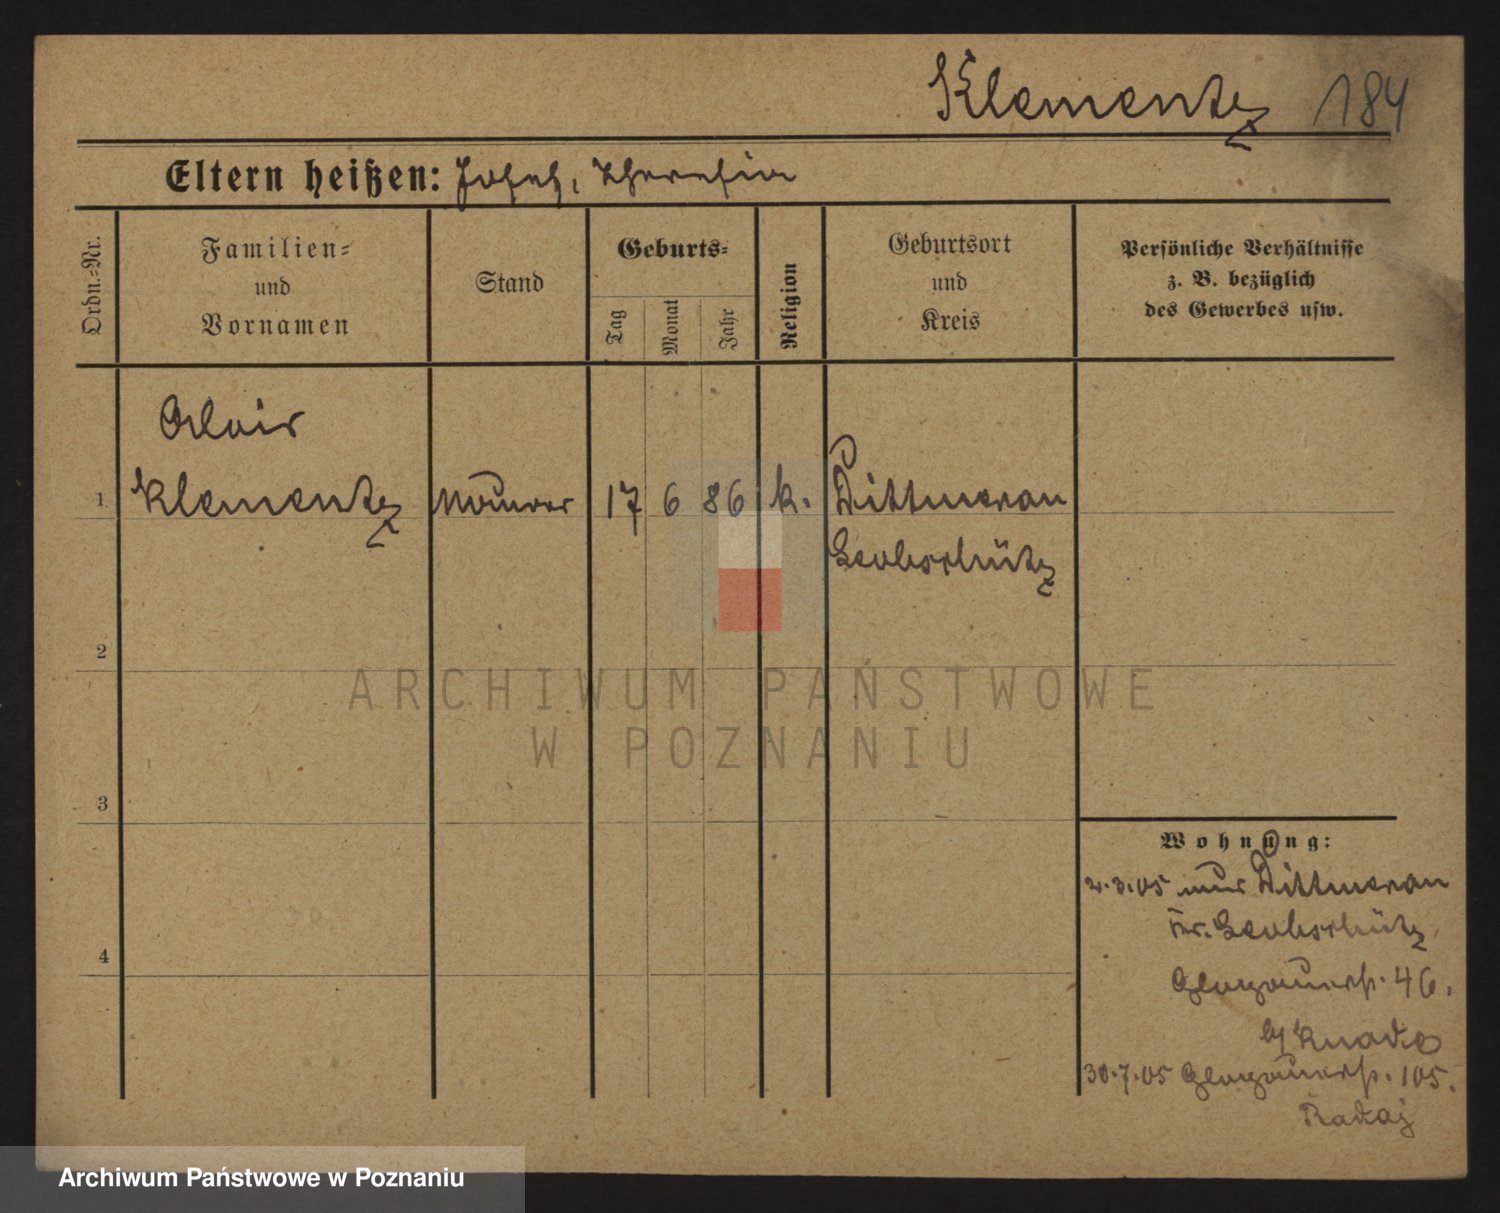 Klementz 184
Eltern heißen: Josef, Theresia
Ordn.=Nr.
Familien=
und
Vornamen
Stand
Geburts=
Tag
Monat
Jahr
Religion
Geburtsort
und
Kreis
Persönliche Verhältnisse
z. B. bezüglich
des Gewerbes usw.
Alois
1 Klementz Maurer 17 6 86 k. Dittmerau
Leobschütz
2
3
4
Wohnung:
2.3.05 aus Dittmerau
Kr. Leobschütz
Glogauerstr. 46.
by
30.7.05 Glogauerstr. 105.
Radaj
ARCHIWUM PAŃSTWOWE
W POZNANIU
Archiwum Państwowe w Poznaniu